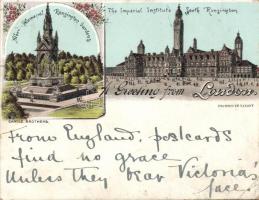 Albert Memorial Kensington Gardens
The Imperial Institute South Kensington
Greeting from London.
From England, postcards
find no grace
Unless they bear Victoria's
face.